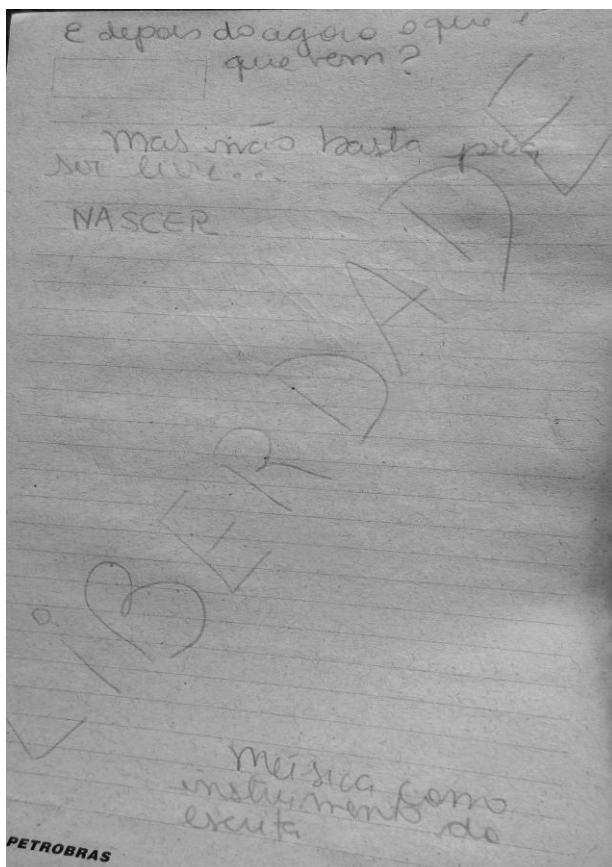 E depois do agora o que é
que vem?
Mas não basta pra
ser livre...
NASCER
LiBERDADE
Música como
instrumento do
escuta
PETROBRAS